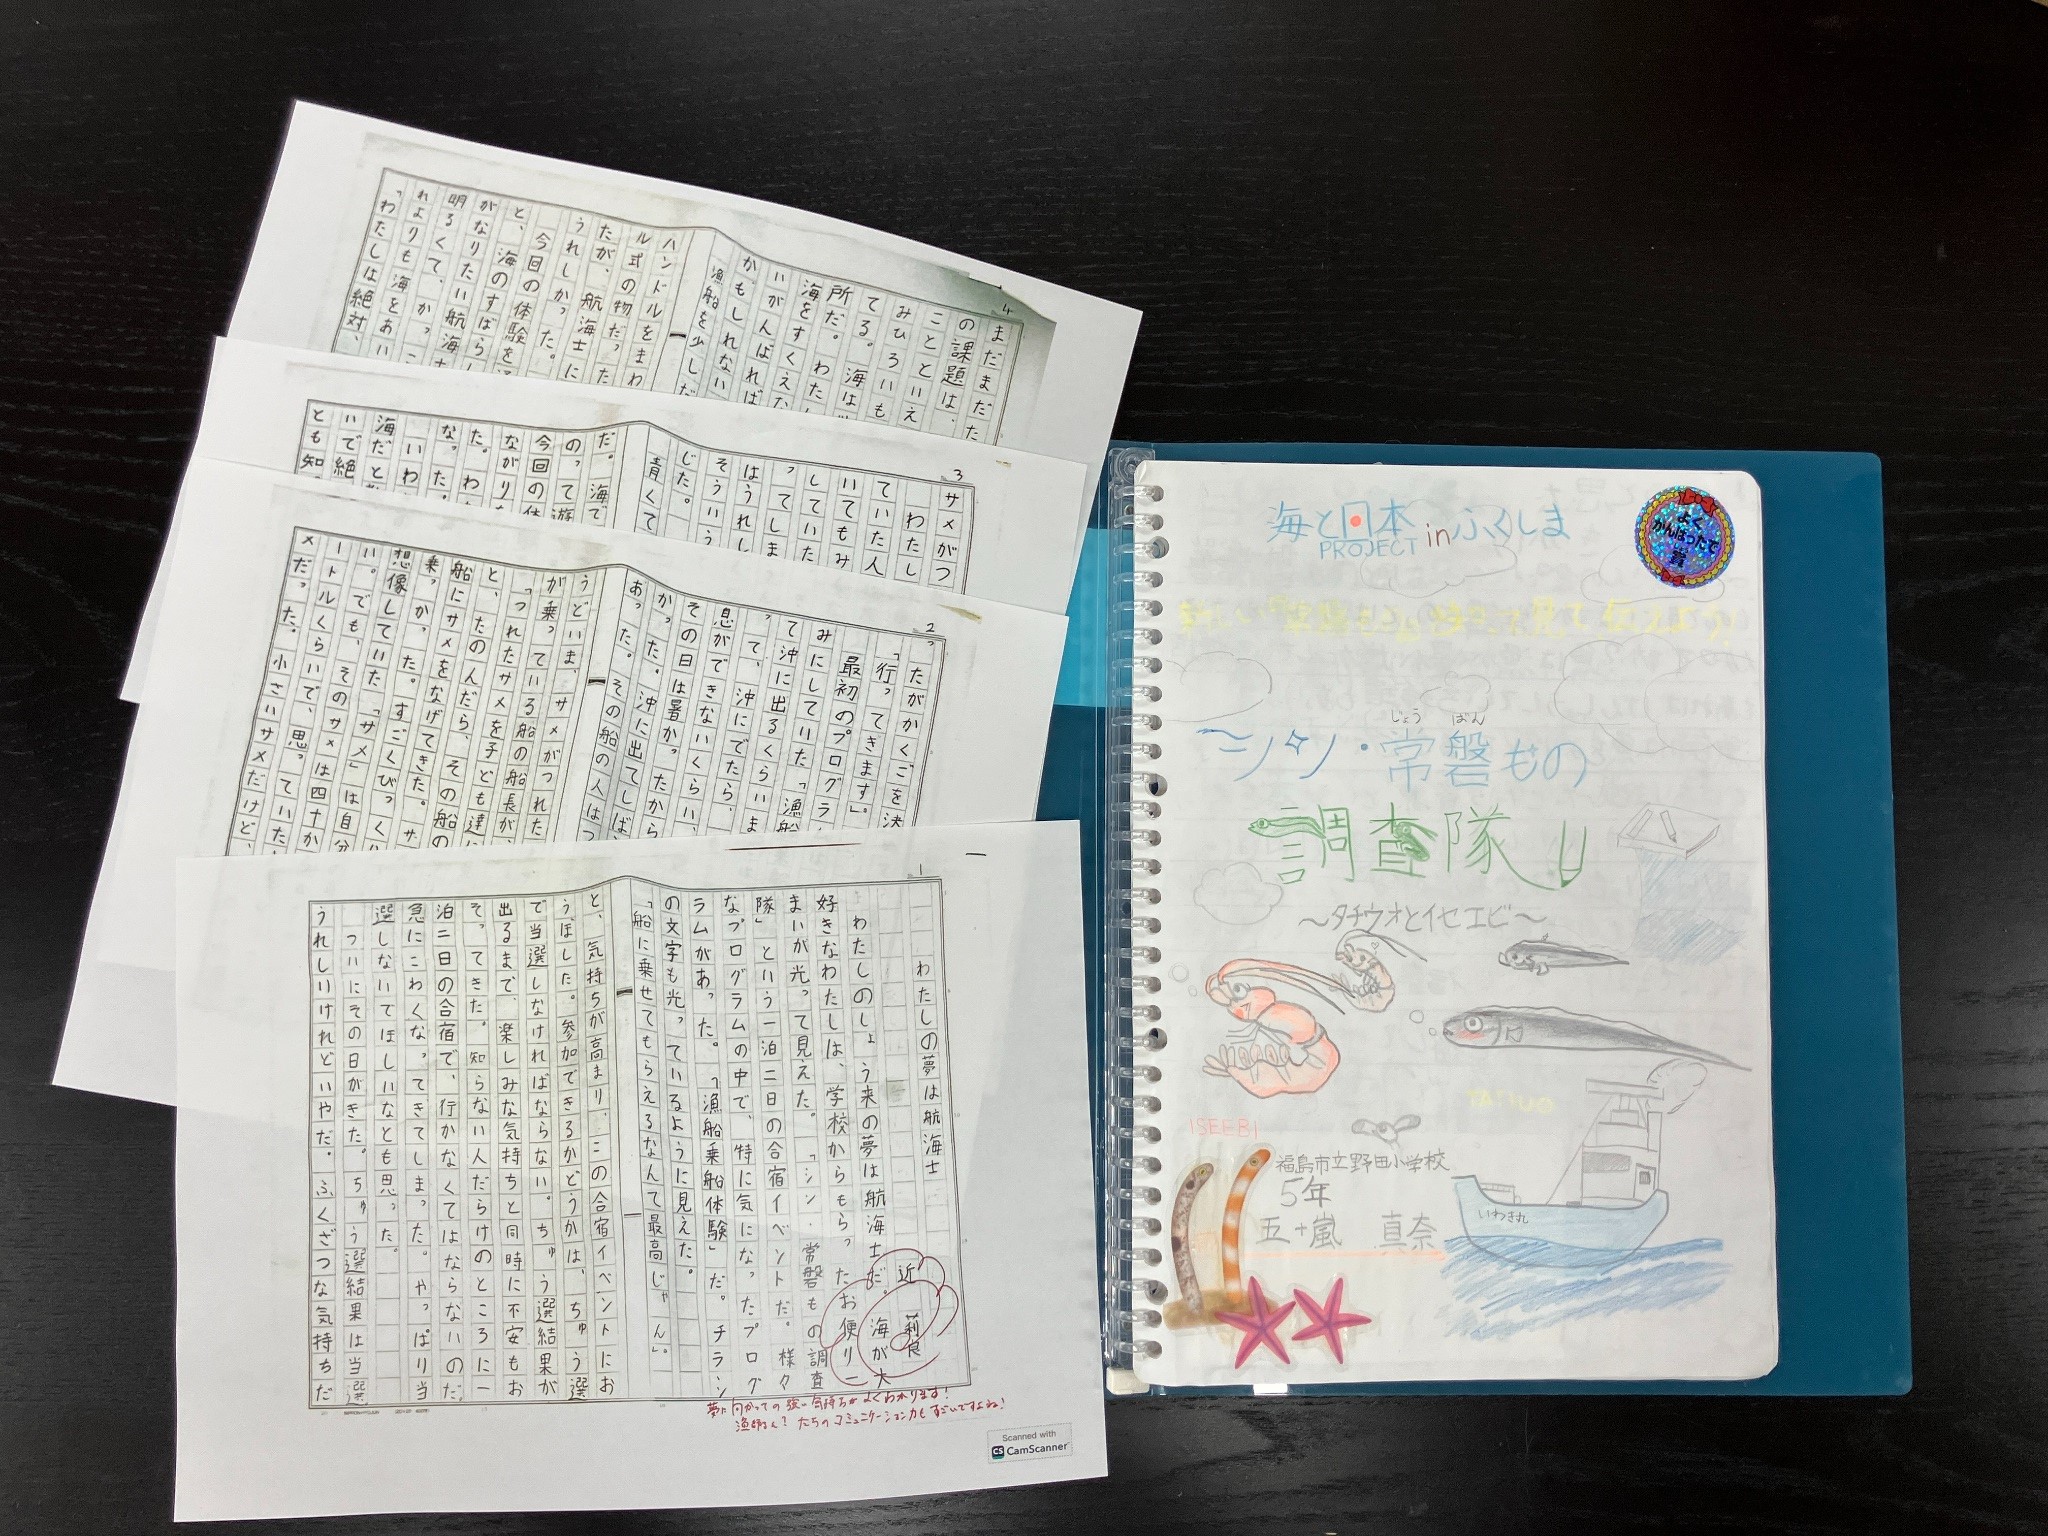 1
わたしの夢は航海士
近 莉良
わたしのしょう来の夢は航海士だ。海が大
好きなわたしは、学校からもらったお便り二
まいが光って見えた。「シン・常磐もの調査
隊」という一泊二日の合宿イベントだ。様々
なプログラムの中で、特に気になったプログ
ラムがあった。「漁船乗船体験」だ。チラシ
の文字も光っているように見えた。
「船に乗せてもらえるなんて最高じゃん。」
と、気持ちが高まり、この合宿イベントにお
うぼした。参加できるかどうかは、ちゅう選
で当選しなければならない。ちゅう選結果が
出るまで、楽しみな気持ちと同時に不安もお
そってきた。知らない人だらけのところに一
泊二日の合宿で、行かなくてはならないのだ。
急にこわくなってきてしまった。やっぱり当
選しないでほしいなとも思った。
ついにその日がきた。ちゅう選結果は当選
うれしいけれどいやだ。ふくざつな気持ちだ
夢に向かっての強い気持ちがよくわかります！
たちのコミュニケーション力もすごいですよね！
Scanned with
CS CamScanner
2
ったがかくごを決
「行ってきます」
最初のプログラ
みにしていた「漁船
て沖に出るくらいま
って、沖にでたら、
息ができないくらい、
その日は暑かったから
かった。沖に出てしば
あった。その船の人はつ
うどいま、サメがつれた
が乗っている船の船長が、
「つれたサメを子ども達に
と、たのんだら、その船の
船にサメをなげてきた。サ
乗っかった。すごくびっく
想像していた「サメ」は自分
い。でも、そのサメは四十か
ートルくらいで、思っていた
メだった。小さいサメだけど、
3
サメがつ
わたし
ていた人
いてもみ
していた
ってしま
はうれし
そういう
じた。
青くて
だ。海で
のって遊
今回の体
ながり
た。わ
なった。
いわ
海だと
いで絶
とも知
4
まだまだた
の課題は、
ことといえ
みひろいも
てる。海は
所だ。わた
海をすくえ
いがんばれば
かもしれない
漁船を少しだ
ハンドルをまわ
ル式の物だった
たが、航海士に
うれしかった。
今回の体験を
と、海のすばら
がなりたい航海士
明るくて、かっこ
れよりも海をあい
「わたしは絶対、
海と日本
PROJECT inふくしま
よく
がんばったで
賞
じょう ばん
シン・常磐もの
調査隊
～タチウオとイセエビ～
ISEEBI
TATIUO
福島市立野田小学校
5年
五十嵐 真奈
いわき丸